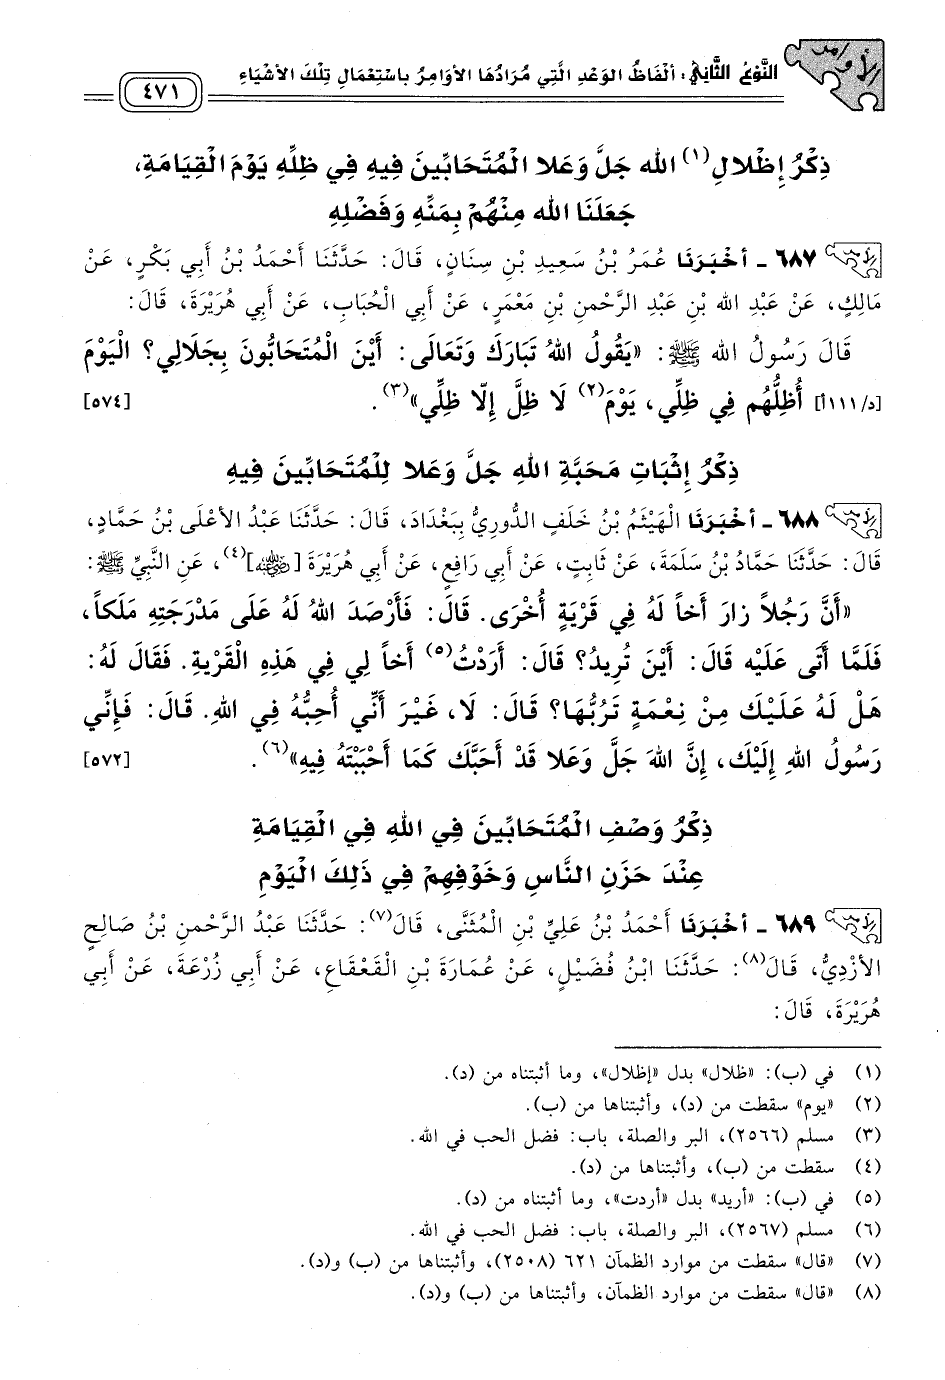 الأوامر
النَّوْعُ الثَّانِي: أَلْفَاظُ الوَعْدِ الَّتِي مُرَادُهَا الأوَامِرُ بِاسْتِعْمَالِ تِلْكَ الأشْيَاءِ
٤٧١
ذِكْرُ إِظْلالِ(١) الله جَلَّ وَعَلا الْمُتَحَابِّينَ فِيهِ فِي ظِلِّهِ يَوْمَ الْقِيَامَةِ،
جَعَلَنَا الله مِنْهُمْ بِمَنِّهِ وَفَضْلِهِ
٦٨٧ - أَخْبَرَنَا عُمَرُ بْنُ سَعِيدِ بْنِ سِنَانٍ، قَالَ: حَدَّثَنَا أَحْمَدُ بْنُ أَبِي بَكْرٍ، عَنْ
مَالِكٍ، عَنْ عَبْدِ الله بْنِ عَبْدِ الرَّحْمنِ بْنِ مَعْمَرٍ، عَنْ أَبِي الْحُبَابِ، عَنْ أَبِي هُرَيْرَةَ، قَالَ:
قَالَ رَسُولُ الله ﷺ: «يَقُولُ اللهُ تَبَارَكَ وَتَعَالَى: أَيْنَ الْمُتَحَابُّونَ بِجَلَالِي؟ الْيَوْمَ
[د/١١١أ] أُظِلُّهُم فِي ظِلِّي، يَوْمَ(٢) لَا ظِلَّ إِلّا ظِلِّي»(٣). [٥٧٤]
ذِكْرُ إِثْبَاتِ مَحَبَّةِ اللهِ جَلَّ وَعَلا لِلْمُتَحَابِّينَ فِيهِ
٦٨٨ - أَخْبَرَنَا الْهَيْثَمُ بْنُ خَلَفٍ الدُّورِيُّ بِبَغْدَادَ، قَالَ: حَدَّثَنَا عَبْدُ الأَعْلَى بْنُ حَمَّادٍ،
قَالَ: حَدَّثَنَا حَمَّادُ بْنُ سَلَمَةَ، عَنْ ثَابِتٍ، عَنْ أَبِي رَافِعٍ، عَنْ أَبِي هُرَيْرَةَ [رضي الله عنه](٤)، عَنِ النَّبِيِّ ﷺ:
«أَنَّ رَجُلاً زارَ أَخاً لَهُ فِي قَرْيَةٍ أُخْرَى. قَالَ: فَأَرْصَدَ اللهُ لَهُ عَلَى مَدْرَجَتِهِ مَلَكاً،
فَلَمَّا أَتَى عَلَيْهِ قَالَ: أَيْنَ تُرِيدُ؟ قَالَ: أَرَدْتُ(٥) أَخاً لِي فِي هَذِهِ الْقَرْيةِ. فَقَالَ لَهُ:
هَلْ لَهُ عَلَيْكَ مِنْ نِعْمَةٍ تَرُبُّهَا؟ قَالَ: لَا، غَيْرَ أَنِّي أُحِبُّهُ فِي اللهِ. قَالَ: فَإِنِّي
رَسُولُ اللهِ إِلَيْكَ، إِنَّ اللهَ جَلَّ وَعَلا قَدْ أَحَبَّكَ كَمَا أَحْبَبْتَهُ فِيهِ»(٦). [٥٧٢]
ذِكْرُ وَصْفِ الْمُتَحَابِّينَ فِي اللهِ فِي الْقِيَامَةِ
عِنْدَ حَزَنِ النَّاسِ وَخَوْفِهِمْ فِي ذَلِكَ الْيَوْمِ
٦٨٩ - أَخْبَرَنَا أَحْمَدُ بْنُ عَلِيِّ بْنِ الْمُثَنَّى، قَالَ(٧): حَدَّثَنَا عَبْدُ الرَّحْمنِ بْنُ صَالِحٍ
الأزْدِيُّ، قَالَ(٨): حَدَّثَنَا ابْنُ فُضَيْلٍ، عَنْ عُمَارَةَ بْنِ الْقَعْقَاعِ، عَنْ أَبِي زُرْعَةَ، عَنْ أَبِي
هُرَيْرَةَ، قَالَ:
(١) في (ب): «ظلال» بدل «إظلال»، وما أثبتناه من (د).
(٢) «يوم» سقطت من (د)، وأثبتناها من (ب).
(٣) مسلم (٢٥٦٦)، البر والصلة، باب: فضل الحب في الله.
(٤) سقطت من (ب)، وأثبتناها من (د).
(٥) في (ب): «أريد» بدل «أردت»، وما أثبتناه من (د).
(٦) مسلم (٢٥٦٧)، البر والصلة، باب: فضل الحب في الله.
(٧) «قال» سقطت من موارد الظمآن ٦٢١ (٢٥٠٨)، وأثبتناها من (ب) و(د).
(٨) «قال» سقطت من موارد الظمآن، وأثبتناها من (ب) و(د).